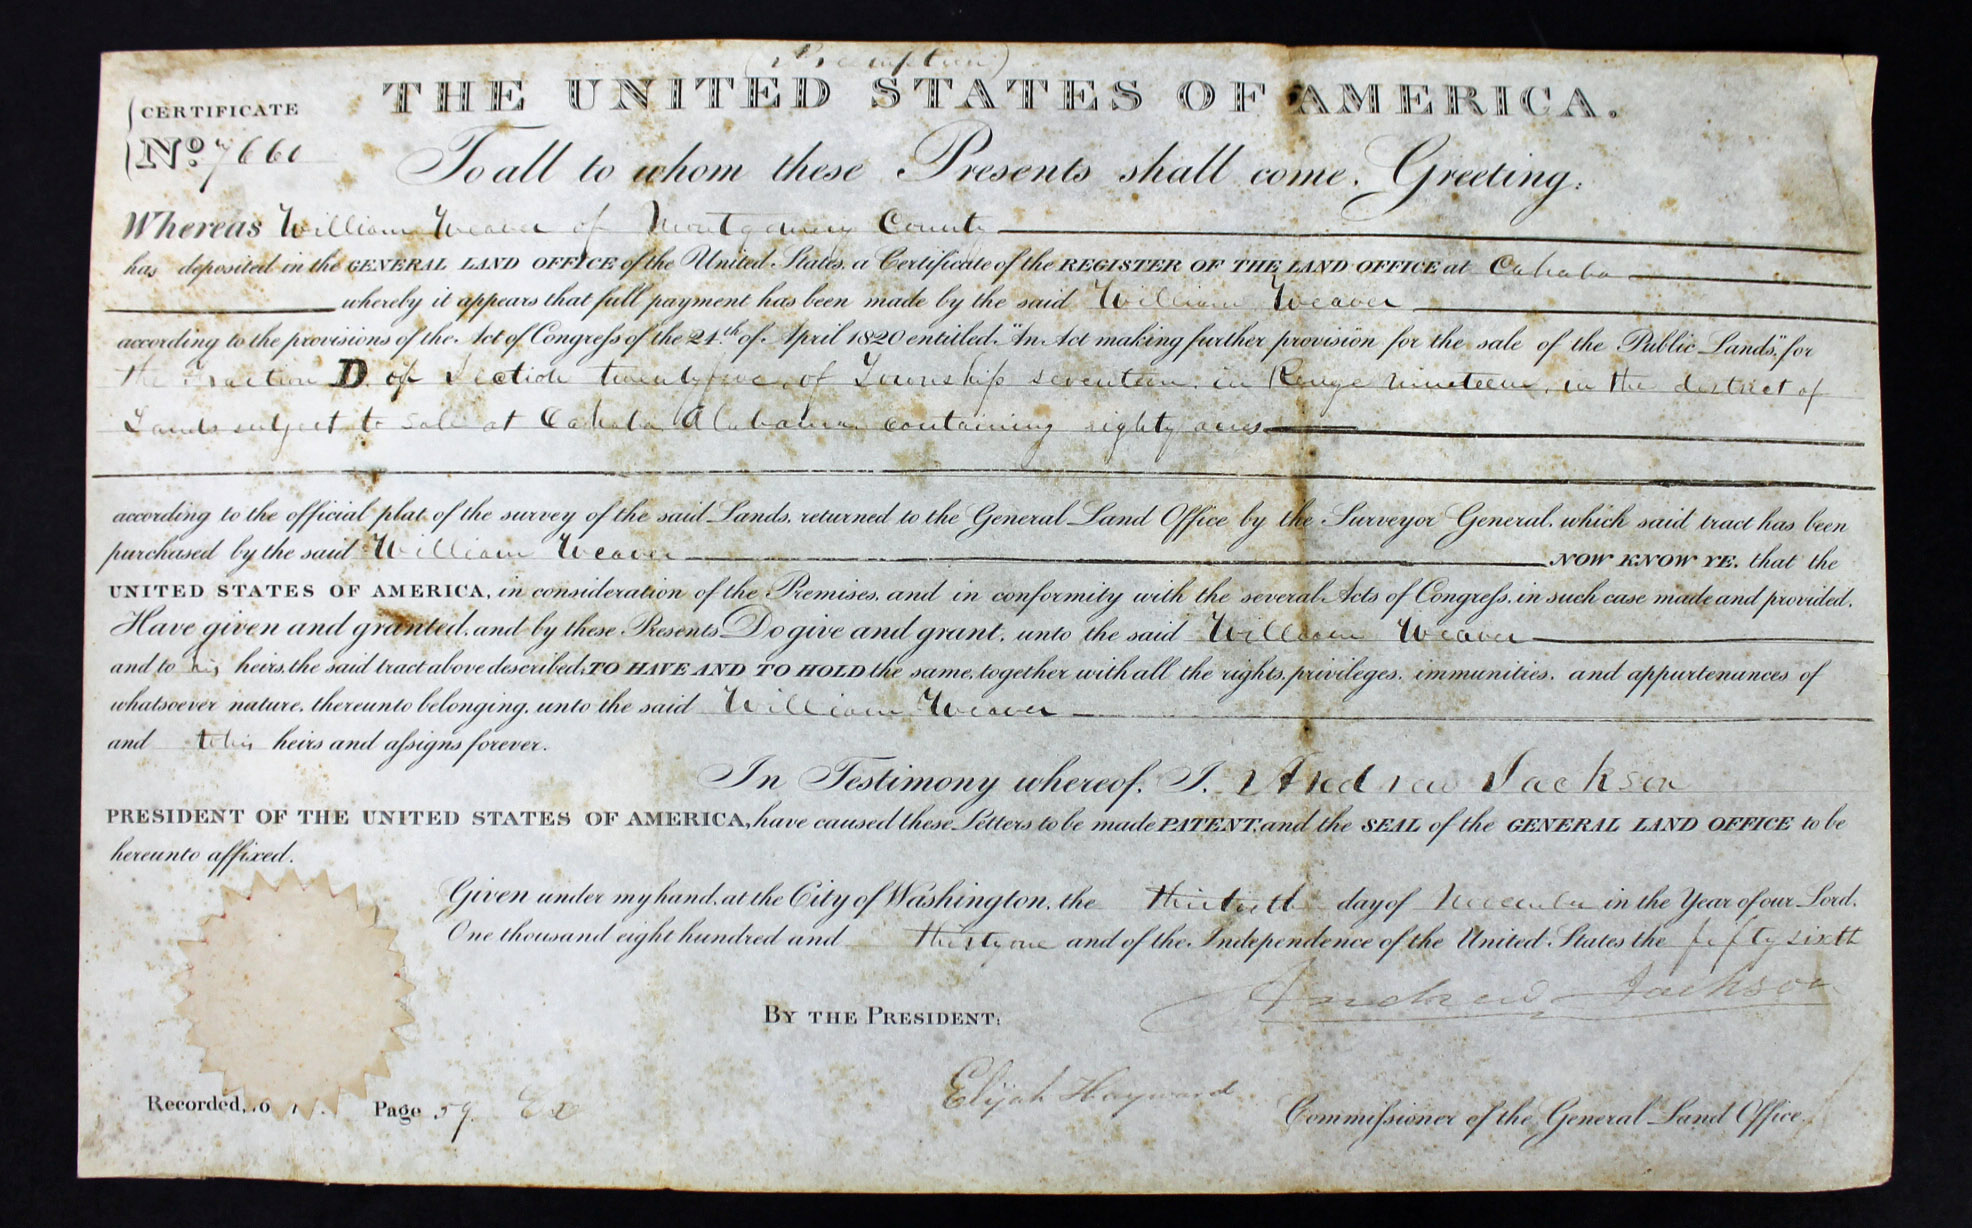 (Preemption)
THE UNITED STATES OF AMERICA.
CERTIFICATE
No. 7660
To all to whom these Presents shall come, Greeting:
Whereas William Weaver of Montgomery County
has deposited in the GENERAL LAND OFFICE of the United States, a Certificate of the REGISTER OF THE LAND OFFICE at Cahaba
whereby it appears that full payment has been made by the said William Weaver
according to the provisions of the Act of Congress of the 24th of April 1820 entitled "An Act making further provision for the sale of the Public Lands," for
the Fraction D. of Section twenty five of Township seventeen, in Range nineteen, in the district of
Lands subject to sale at Cahaba Alabama, containing eighty acres
according to the official plat of the survey of the said Lands, returned to the General Land Office by the Surveyor General, which said tract has been
purchased by the said William Weaver NOW KNOW YE, that the
UNITED STATES OF AMERICA, in consideration of the Premises, and in conformity with the several Acts of Congress, in such case made and provided,
Have given and granted, and by these Presents Do give and grant, unto the said William Weaver
and to his heirs, the said tract above described, TO HAVE AND TO HOLD the same, together with all the rights, privileges, immunities, and appurtenances of
whatsoever nature, thereunto belonging, unto the said William Weaver
and to his heirs and assigns forever.
In Testimony whereof, I, Andrew Jackson
PRESIDENT OF THE UNITED STATES OF AMERICA, have caused these Letters to be made PATENT, and the SEAL of the GENERAL LAND OFFICE to be
hereunto affixed.
Given under my hand, at the City of Washington, the thirtieth day of November in the Year of our Lord,
One thousand eight hundred and thirty one and of the Independence of the United States the fifty sixth
Andrew Jackson
BY THE PRESIDENT:
Elijah Hayward
Commissioner of the General Land Office.
Recorded, Page 59. Ex